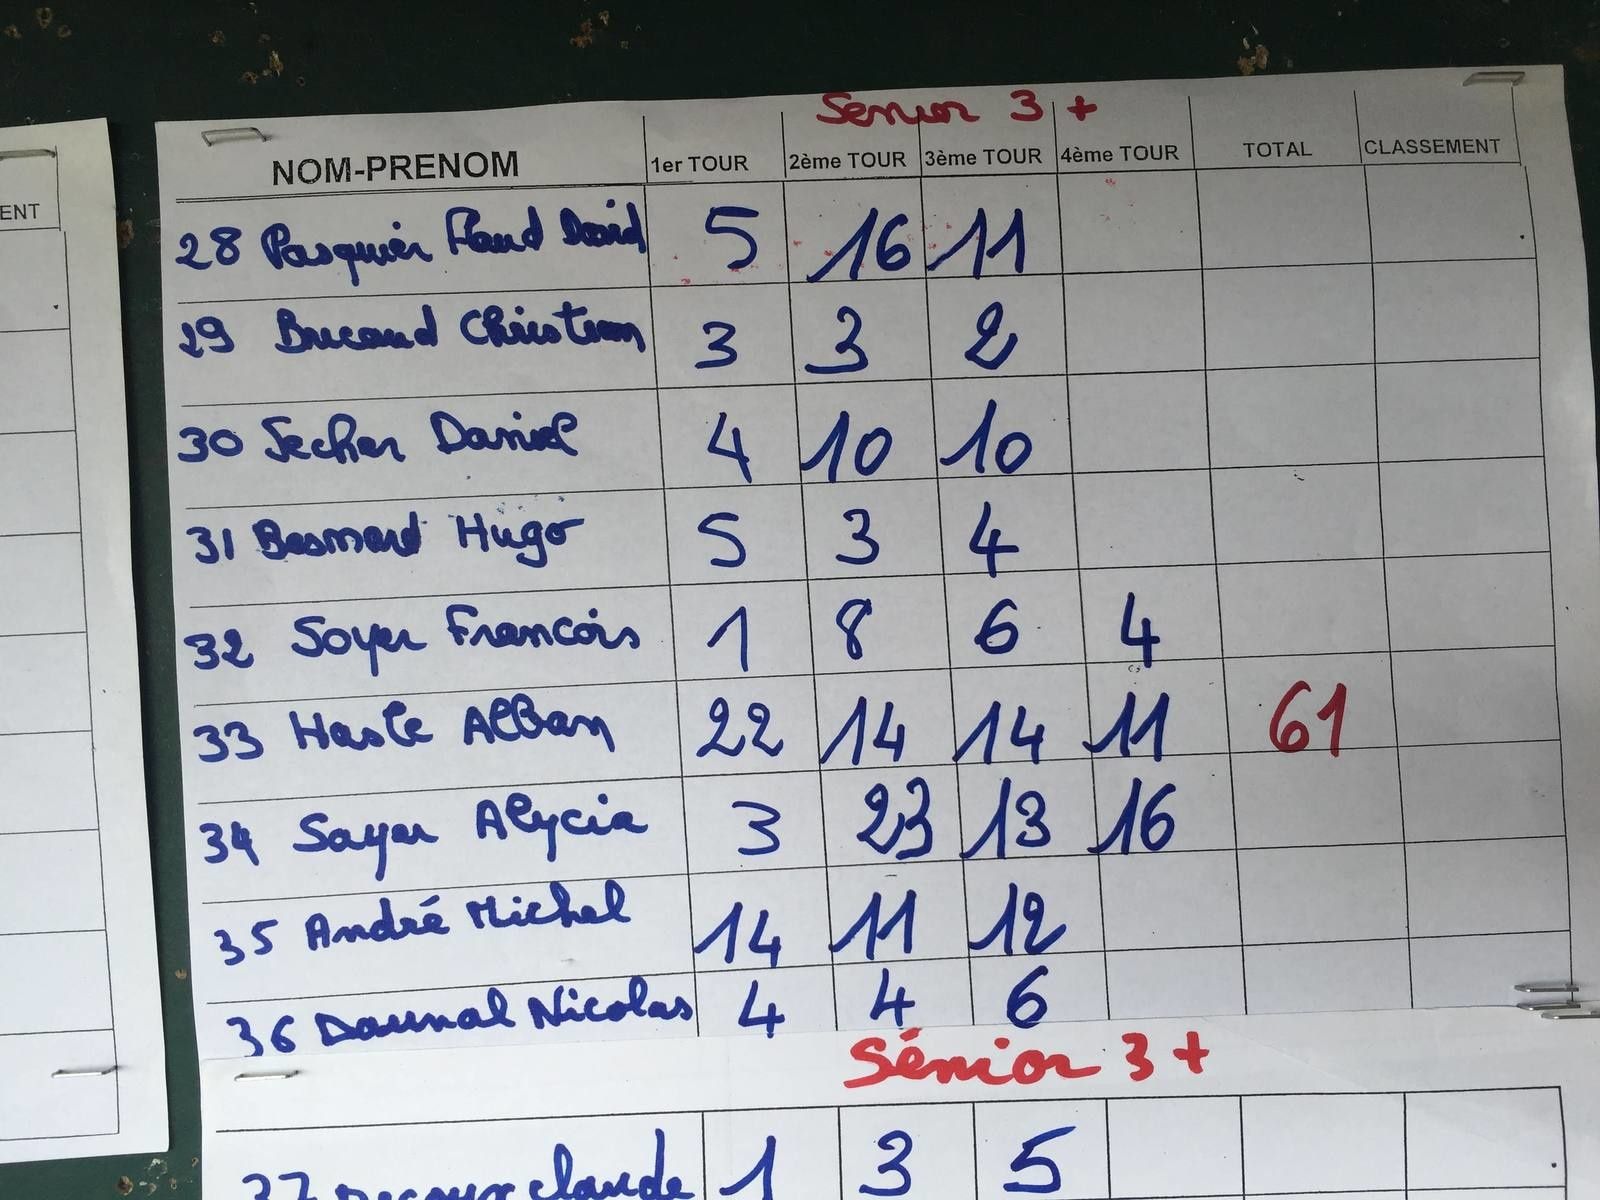 ENT
Senior 3 +
NOM-PRENOM 1er TOUR 2ème TOUR 3ème TOUR 4ème TOUR TOTAL CLASSEMENT
28 Pasquier David 5 16 11
29 Christian 3 3 2
30 Secher Daniel 4 10 10
31 Besnard Hugo 5 3 4
32 Soyer Francois 1 8 6 4
33 Hasle Alban 22 14 14 11 61
34 Sayer Alycia 3 23 13 16
35 André Michel 14 11 12
36 Daunal Nicolas 4 4 6
Sénior 3 +
37 claude 1 3 5